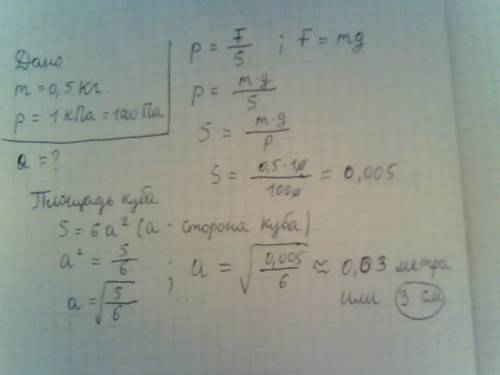 Дано:
m = 0,5 кг
p = 1 кПа = 1000 Па
a = ?
p = F/S ; F = mg
p = m·g/S
S = m·g/p
S = 0,5·10/1000 = 0,005
Площадь куба
S = 6a² (a - сторона куба).
a² = S/6
a = √(S/6) ; a = √(0,005/6) ≈ 0,03 метра
или 3 см